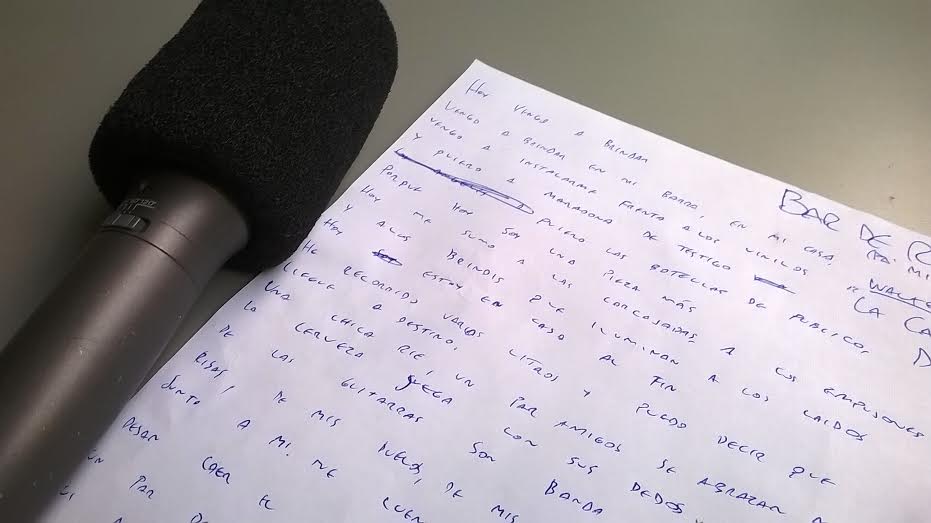 HOY VENGO A BRINDAR
VENGO A BRINDAR EN MI BARRIO, EN MI CASA,
VENGO A INSTALARME FRENTE A LOS VINILOS
Y QUIERO A MARADONA DE TESTIGO
QUIERO LAS BOTELLAS DE PUBLICO,
PORQUE HOY SOY UNA PIEZA MÁS
HOY ME SUMO A LAS CARCAJADAS, A LOS EMPUJONES
Y A LOS BRINDIS QUE ILUMINAN A LOS CAIDOS
HOY ESTOY EN CASA AL FIN
HE RECORRIDO VARIOS LITROS Y PUEDO DECIR QUE
LLEGUE A DESTINO.
UNA CHICA RIE, UN PAR AMIGOS SE ABRAZAN
LA CERVEZA JUEGA CON SUS DEDOS
DE LAS GUITARRAS SON BANDA
RISAS, DE MIS DUELOS, DE MIS
JUNTO A MI. ME
CAER EL
UN PAR DE
BAR DE
LA CA